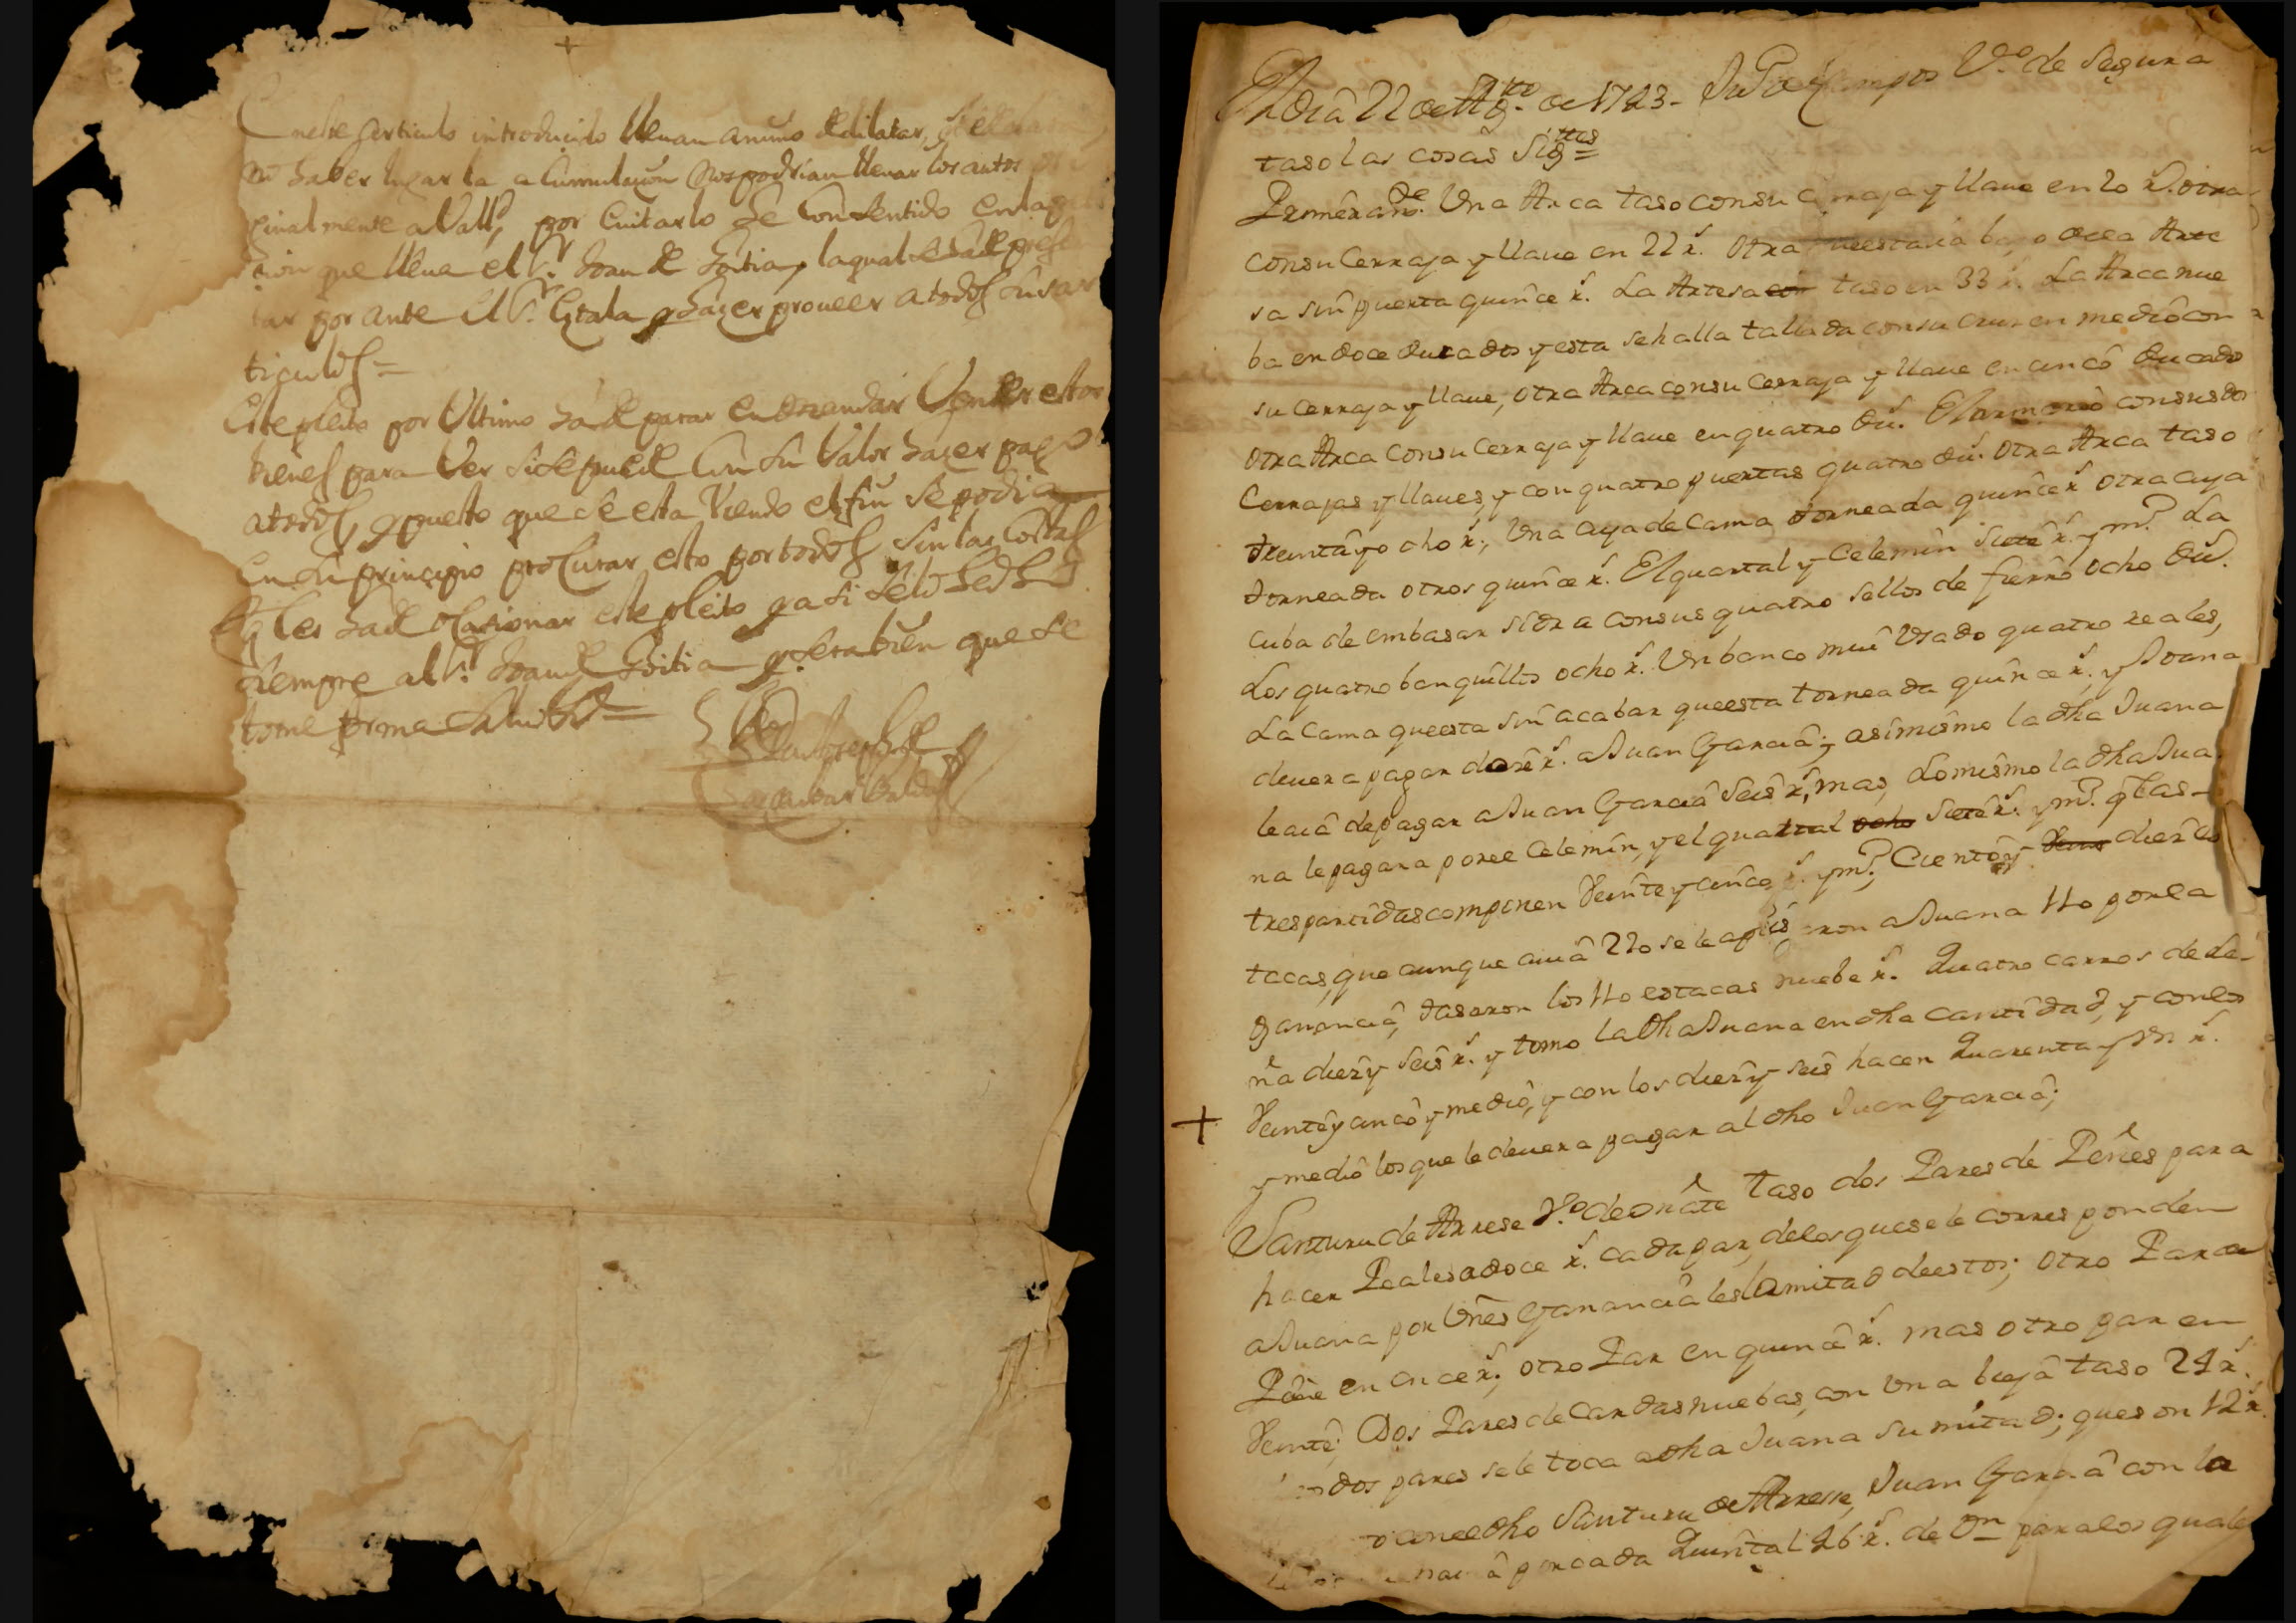 En este articulo introducido llevan animo de dilatar,
no haber lugar la acumulacion nos podrian llevar los autos
ginalmente a Vall.d, por evitarlo se consentido en la
cion que lleva el S.r Joan de Goitia, la qual se ha de presen
tar por ante el S.r Gtala y hacer proveer a todos sus ar
ticulos =
Este pleito por ultimo ha de parar en mandar vender estos
bienes para ver si se puede con su valor hacer pago
a todos, y puesto que se esta viendo el fin se podia
en su principio procurar esto por todos sin las costas
q les ha de ocasionar este pleito
siempre al S.r Joan de Goitia y sera bien que se
tome forma
En dia 22 de Ag.to de 1723 - Campos V.o de Segura
taso las cosas Sig.tes =
Primeram.te Una Arca taso con su cerraja y llave en 20 r.s otra
con su Cerraja y llave en 22 r.s Otra que estava bajo de ca Arte
sa sin puerta quince r.s La Artesa taso en 33 r.s La Arca nue
ba en doce ducados y esta se halla tallada con su cruz en medio con
su cerraja y llave, otra Arca con su Cerraja y llave en cinco ducados
Otra Arca con su Cerraja y llave en quatro du.s El armario con sus dos
Cerrajas y llaves, y con quatro puertas quatro du.s Otra Arca taso
treinta y ocho r.s, Una caja de Cama torneada quince r.s otra caja
torneada otros quince r.s El quartal y Celemin siete r.s y m.o La
cuba de embasar sidra con sus quatro sellos de fierro ocho du.s
Los quatro banquillos ocho r.s Un banco mui usado quatro reales,
La Cama que esta sin acabar que esta torneada quince r.s, y Joana
devera pagar doce r.s a Juan Garcia; asimismo la dha Juana
le aia de pagar a Juan Garcia seis r.s, mas, Lo mismo la dha Jua
na le pagara por el Celemin, y el quartal ocho siete r.s y m.o q tas
tres partidas componen Veinte y cinco r.s y m.o, Ciento y diez es
tacas, que aunque auia 220 se le aplicaron a Juana 110 por la
ganancia, tasaron los 110 estacas nuebe r.s Quatro carros de Le-
ña diez y seis r.s y tomo la dha Juana en dha cantidad, y con los
Veinte y cinco y medio, y con los diez y seis hacen Quarenta y un r.s
+ y medio los que le devera pagar al dho Juan Garcia;
Santuru de Arrese V.o de oñate Taso dos Pares de Peñes para
hacer Reales a doce r.s cada par, de los que se le corresponden
a Juana por Vnes Gananciales la mitad de estos; otro Par de
Peñe en once r.s, otro Par en quince r.s mas otro par en
Veinte; Dos Pares de Cardas nuebas, con una bieja taso 24 r.s,
dos pares se le toca a dha Juana su mitad; que son 12 r.s
dho Santuru de Arrese, Juan Garcia con la
por cada Quintal 26 r.s de Vn para los quales